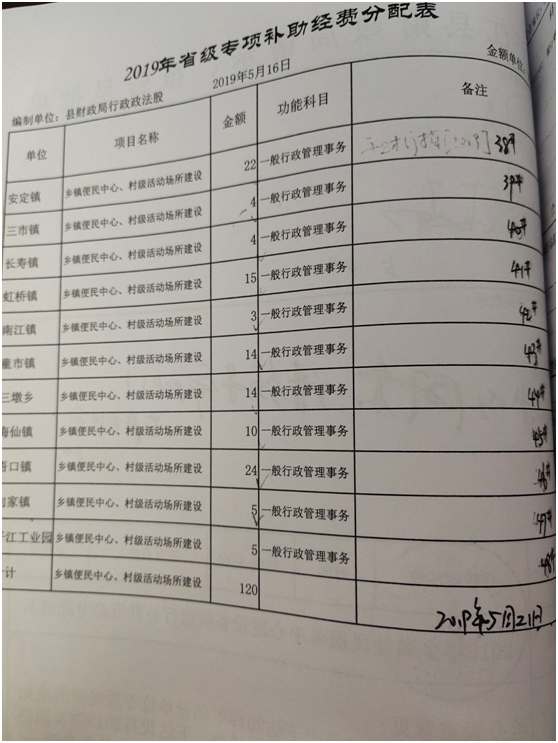 2019年省级专项补助经费分配表
编制单位：县财政局行政政法股 2019年5月16日 金额单位:
单位 项目名称 金额 功能科目 备注
安定镇 乡镇便民中心、村级活动场所建设 22 一般行政管理事务 [2019] 38#
三市镇 乡镇便民中心、村级活动场所建设 4 一般行政管理事务 39#
长寿镇 乡镇便民中心、村级活动场所建设 4 一般行政管理事务 40#
虹桥镇 乡镇便民中心、村级活动场所建设 15 一般行政管理事务 41#
南江镇 乡镇便民中心、村级活动场所建设 3 一般行政管理事务 42#
童市镇 乡镇便民中心、村级活动场所建设 14 一般行政管理事务 43#
三墩乡 乡镇便民中心、村级活动场所建设 14 一般行政管理事务 44#
梅仙镇 乡镇便民中心、村级活动场所建设 10 一般行政管理事务 45#
口镇 乡镇便民中心、村级活动场所建设 24 一般行政管理事务 46#
家镇 乡镇便民中心、村级活动场所建设 5 一般行政管理事务 47#
江工业园 乡镇便民中心、村级活动场所建设 5 一般行政管理事务 48#
计 乡镇便民中心、村级活动场所建设 120
2019年5月21日